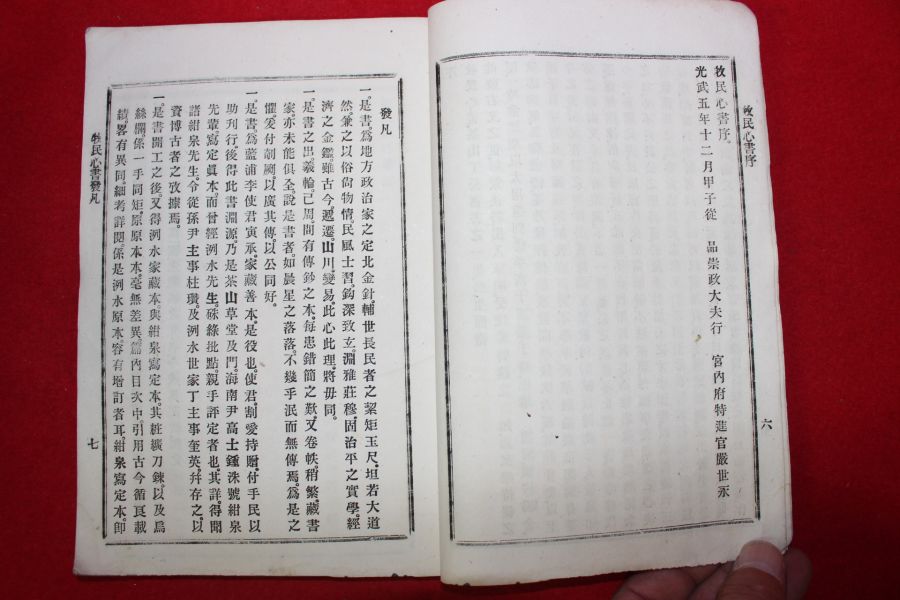 牧民心書序
牧民心書序。
光武五年十二月甲子從一品崇政大夫行 宮內府特進官嚴世永
六
發凡
一。是書。爲地方政治家之定北金針。輔世長民者之絜矩玉尺。坦若大道
然。兼之以俗尙物情。民風士習。鈎深致玄。淵雅莊穆。固治平之實學。經
濟之金鑑。雖古今遞遷。山川變易。此心此理。將毋同。
一。是書之出。羲輪。已周。間有傳鈔之本。每患錯簡之歎。又卷帙。稍繁。藏書
家。亦未能俱全。說是書者。如晨星之落落。不幾乎泯而無傳焉。爲是之
懼。爰付剞劂。以廣其傳。以公同好。
一。是書。爲藍浦李使君寅承。家藏善本。是役也。使君。割愛持贈。付手民以
助刊行。後得此書淵源。乃是茶山草堂及門。海南尹高士鍾洙號紺泉
先輩寫定眞本。而曾經洌水先生。硃綠批點。親手評定者也。其詳。得聞
諸紺泉先生。令從孫尹主事柱瓚。及洌水世家丁主事奎英。幷存之。以
資博古者之攷據焉。
一。是書開工之後。又得洌水家藏本。與紺泉寫定本。其粧繢刀鍊。以及烏
絲欄。係一手同矩。原原本本。毫無差異。篇內目次中。引用古今循良載
績。畧有異同。細考詳閱。係是洌水原本。容有增訂者耳。紺泉寫定本。卽
牧民心書發凡
七